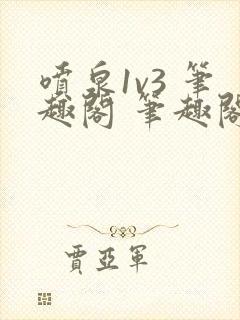 噴泉1v3 筆
趣閣 筆趣閣
賈亞軍